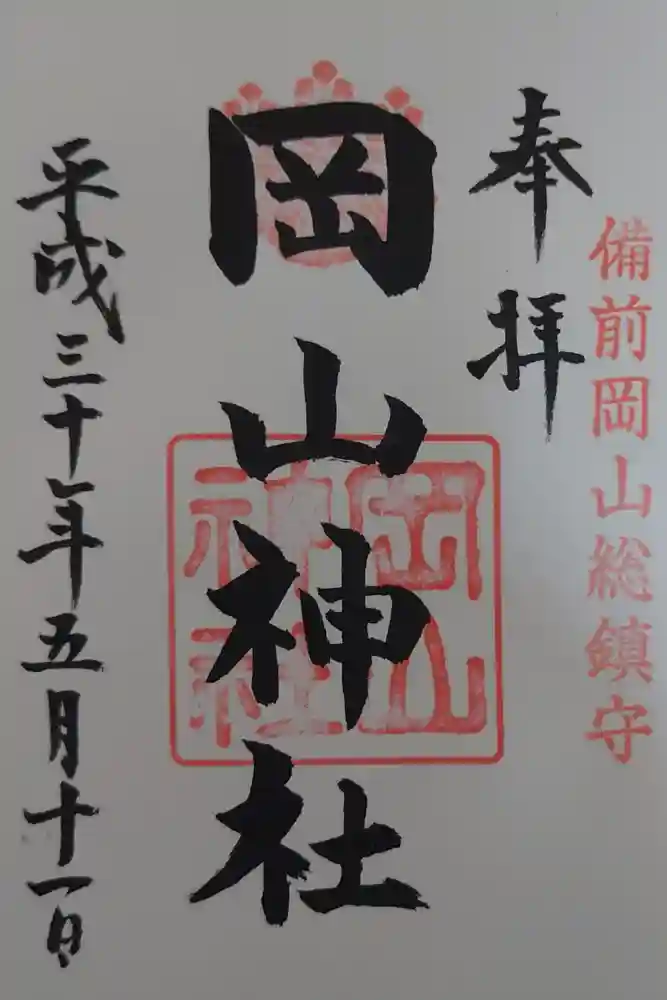 備前岡山総鎮守
奉拝
岡山神社
岡山神社
平成三十年五月十一日